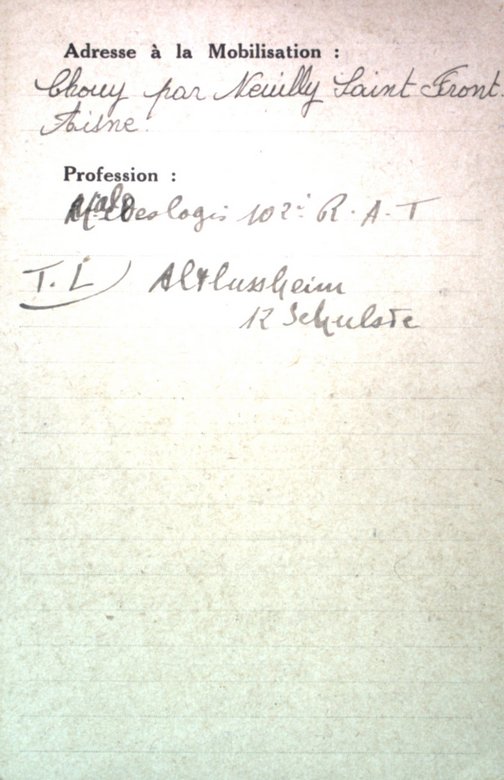 Adresse à la Mobilisation :
Chouy par Neuilly Saint Front.
Aisne.
Profession :
deslogis 102e R. A. T
T. L) Altlussheim
12 Schulste